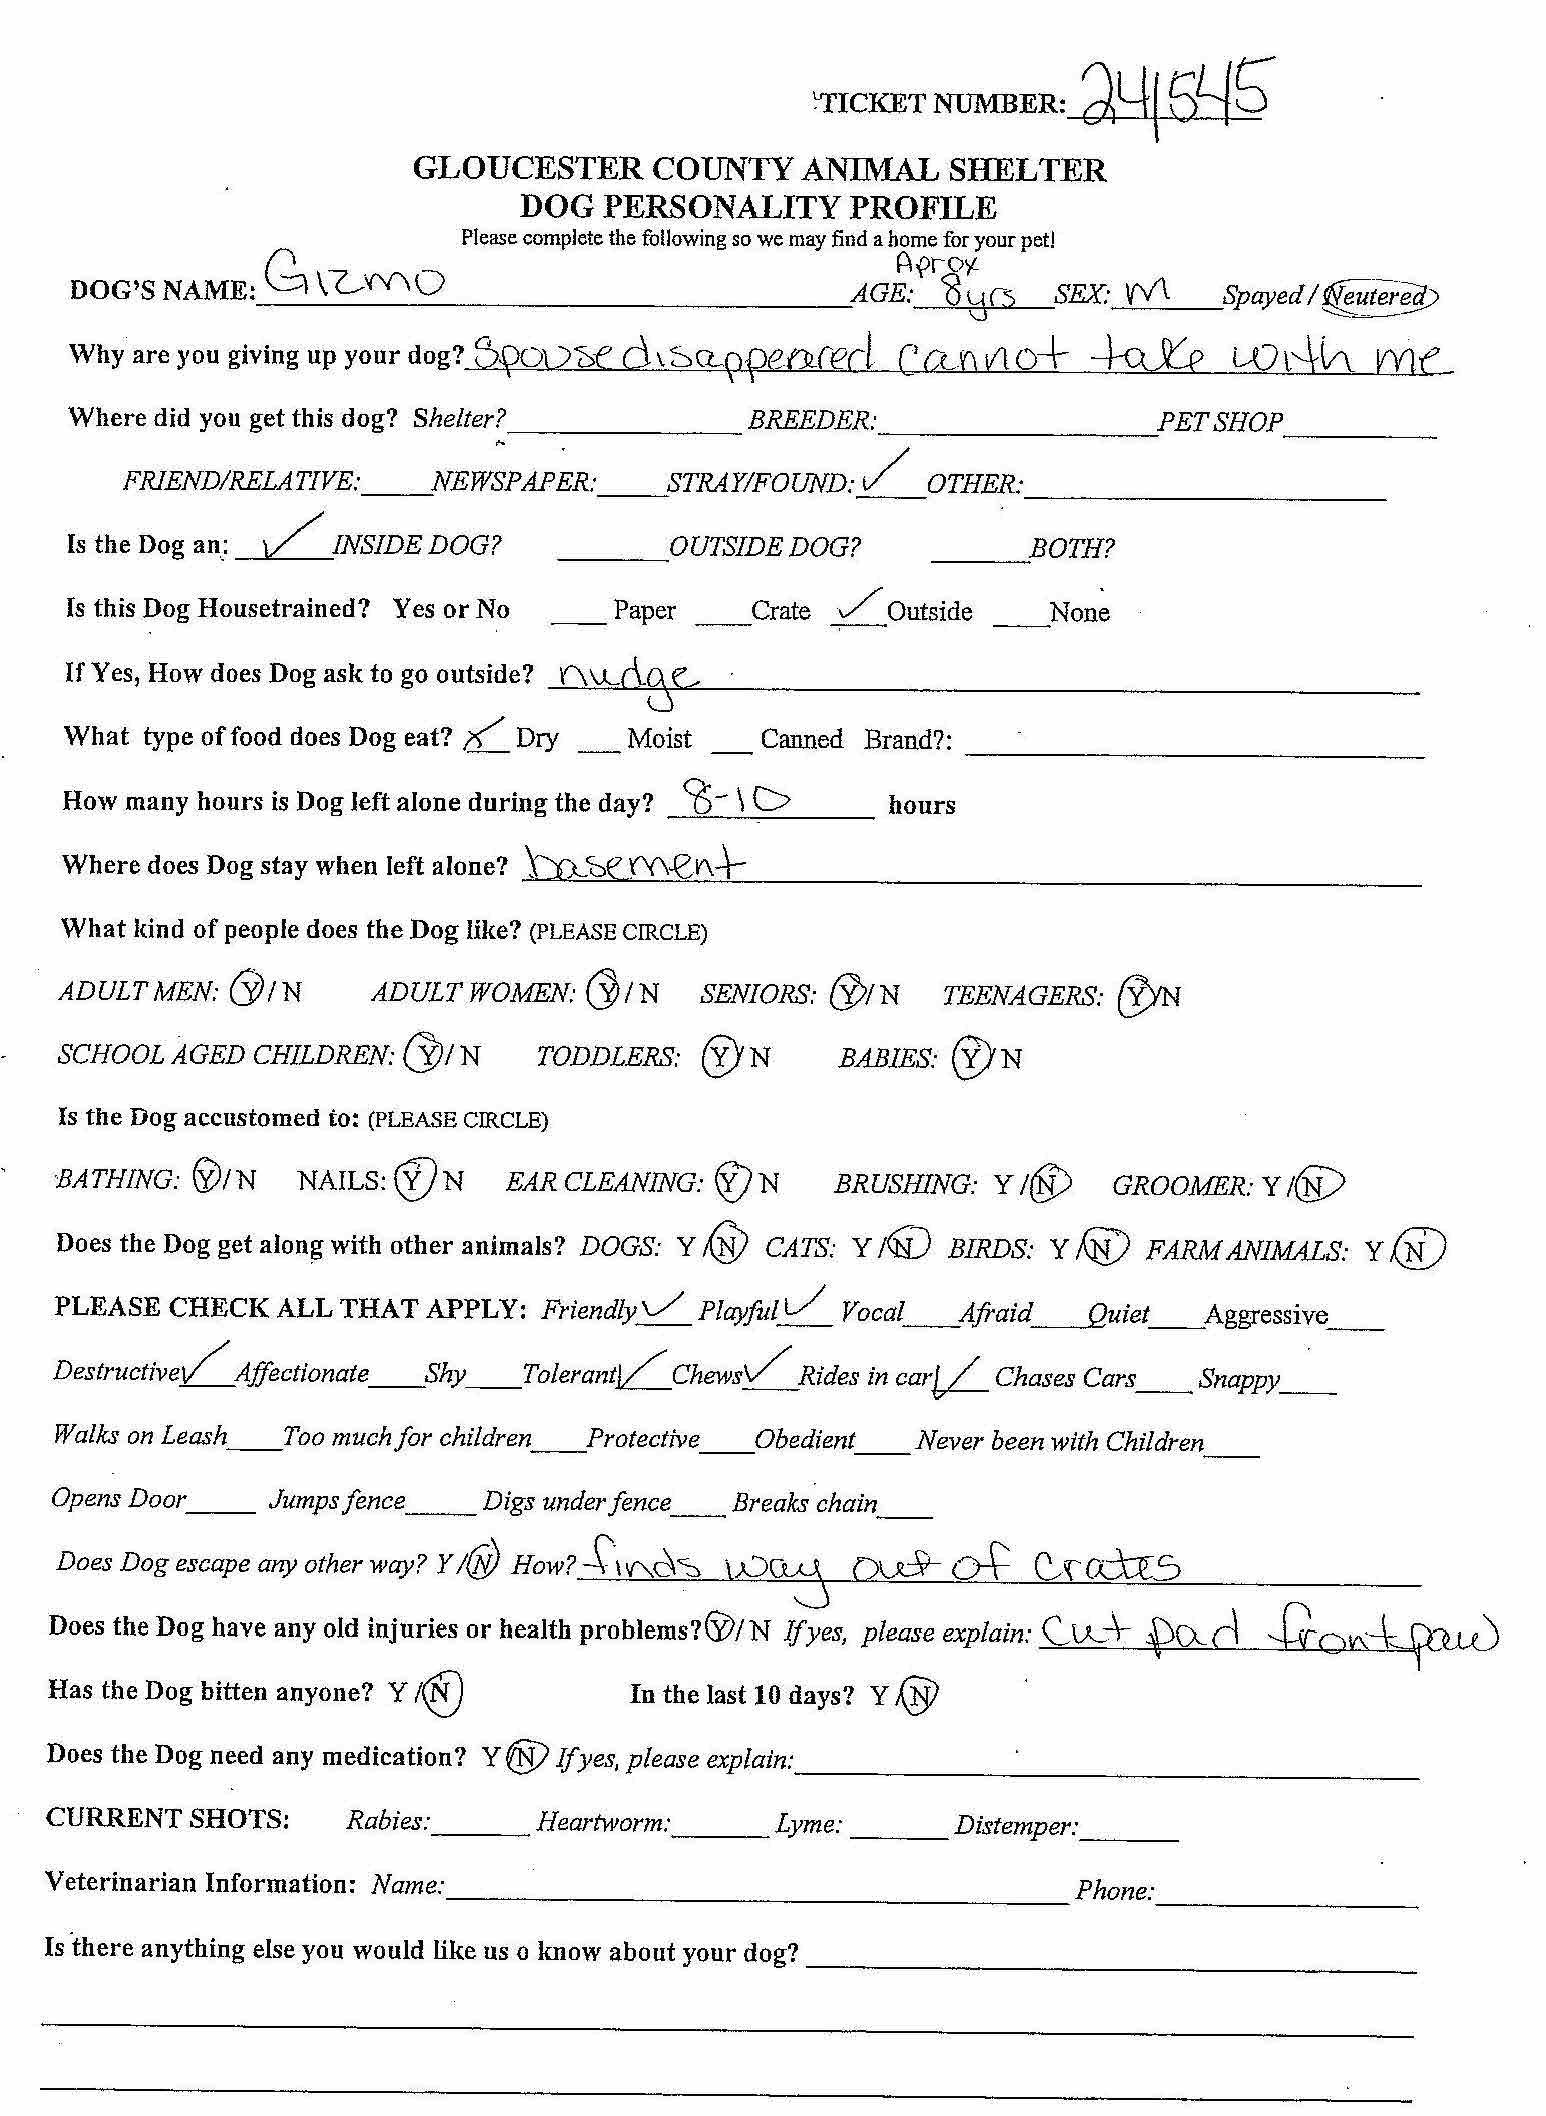 TICKET NUMBER: 241545
GLOUCESTER COUNTY ANIMAL SHELTER
DOG PERSONALITY PROFILE
Please complete the following so we may find a home for your pet!
DOG'S NAME: Gizmo AGE: Aprox 8yrs SEX: M Spayed / Neutered
Why are you giving up your dog? Spouse disappeared cannot take with me
Where did you get this dog? Shelter?____ BREEDER:____ PET SHOP____
FRIEND/RELATIVE:____ NEWSPAPER:____ STRAY/FOUND: ✓ OTHER:____
Is the Dog an: ✓ INSIDE DOG? ____OUTSIDE DOG? ____BOTH?
Is this Dog Housetrained? Yes or No ____ Paper ____Crate ✓ Outside ____None
If Yes, How does Dog ask to go outside? nudge
What type of food does Dog eat? X Dry ___ Moist ___ Canned Brand?: ____
How many hours is Dog left alone during the day? 8-10 hours
Where does Dog stay when left alone? basement
What kind of people does the Dog like? (PLEASE CIRCLE)
ADULT MEN: Y / N ADULT WOMEN: Y / N SENIORS: Y / N TEENAGERS: Y/N
SCHOOL AGED CHILDREN: Y / N TODDLERS: Y/ N BABIES: Y/ N
Is the Dog accustomed to: (PLEASE CIRCLE)
BATHING: Y / N NAILS: Y / N EAR CLEANING: Y / N BRUSHING: Y / N GROOMER: Y / N
Does the Dog get along with other animals? DOGS: Y / N CATS: Y / N BIRDS: Y / N FARM ANIMALS: Y / N
PLEASE CHECK ALL THAT APPLY: Friendly ✓ Playful ✓ Vocal____ Afraid____ Quiet____ Aggressive____
Destructive ✓ Affectionate____ Shy____ Tolerant ✓ Chews ✓ Rides in car ✓ Chases Cars____ Snappy____
Walks on Leash____ Too much for children____ Protective____ Obedient____ Never been with Children____
Opens Door____ Jumps fence____ Digs under fence____ Breaks chain____
Does Dog escape any other way? Y / N How? finds way out of crates
Does the Dog have any old injuries or health problems? Y / N If yes, please explain: cut pad front paw
Has the Dog bitten anyone? Y / N In the last 10 days? Y / N
Does the Dog need any medication? Y / N If yes, please explain:____
CURRENT SHOTS: Rabies:____ Heartworm:____ Lyme: ____ Distemper:____
Veterinarian Information: Name:____ Phone:____
Is there anything else you would like us o know about your dog? ____